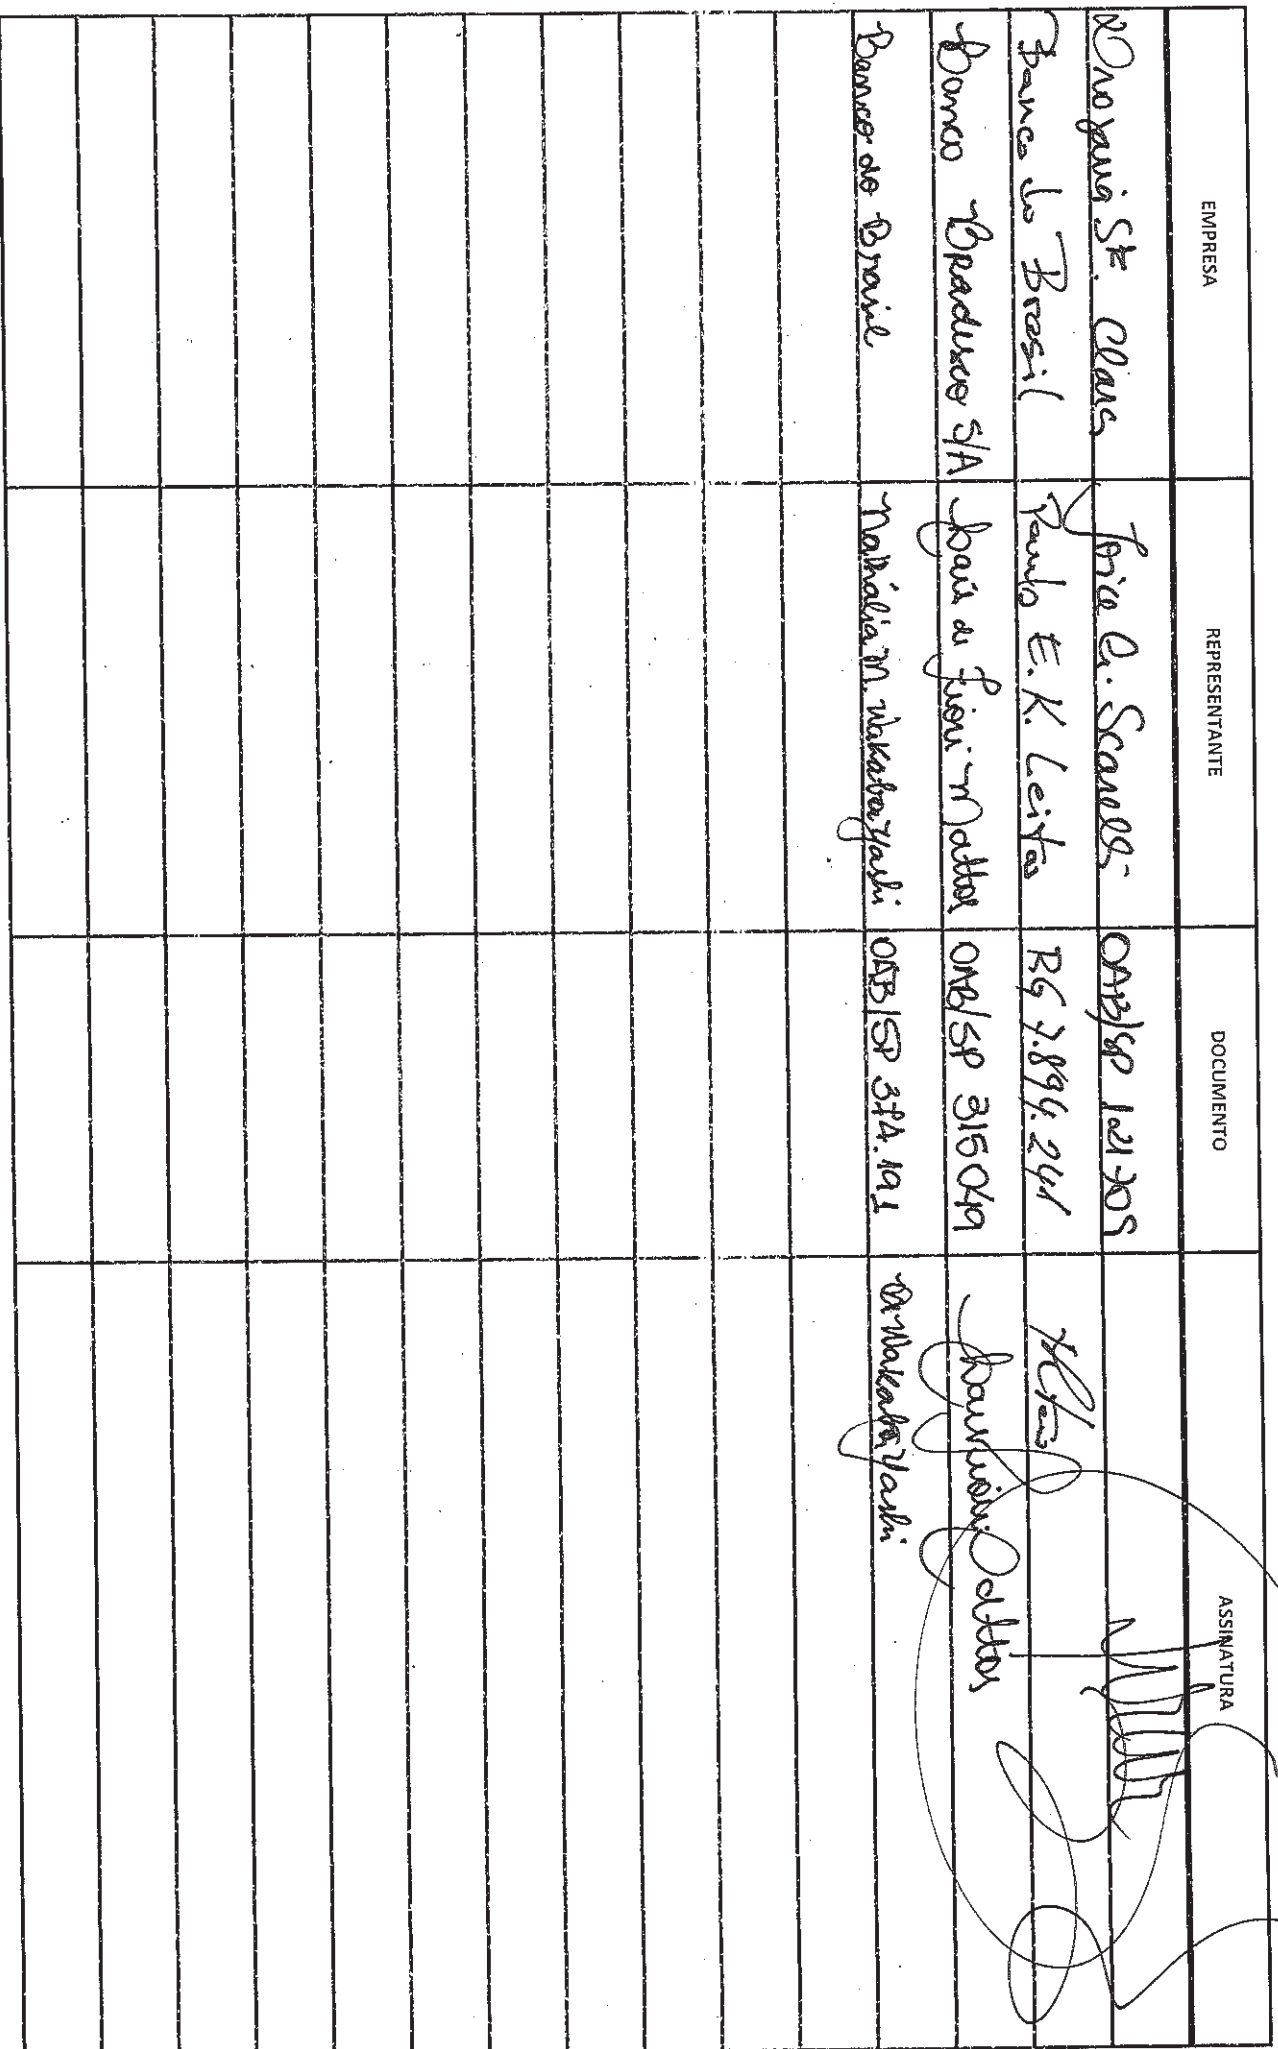 EMPRESA REPRESENTANTE DOCUMENTO ASSINATURA
Drogaria St. Clara Joice C. OAB/SP 121709
Banco do Brasil Paulo E. K. Leitão RG 7.899.241
Banco Bradesco S/A Laís de Fiori Mattos OAB/SP 315049 Mattos
Banco do Brasil Nathália M. Wakabayashi OAB/SP 374.191 Wakabayashi